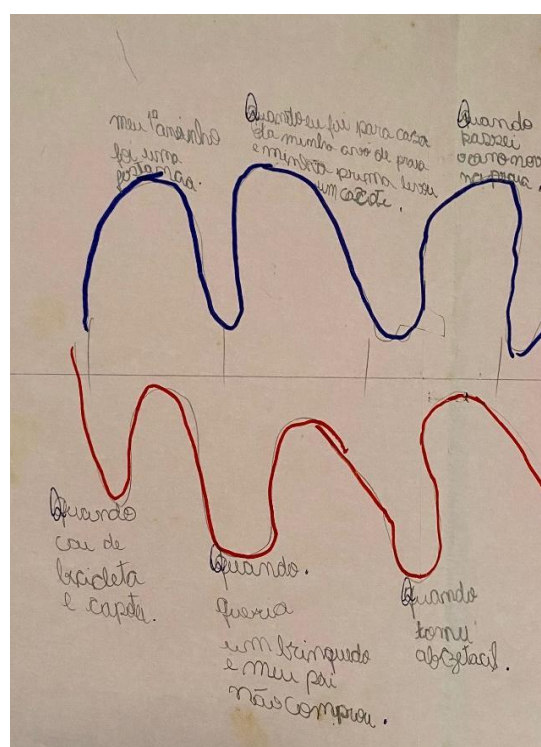 meu 1º aninho
foi uma
Quando eu fui para casa
da minha avó de praia
e minha prima levou
um caxote.
Quando
passei
o ano novo
na praia.
Quando
cau de
bicicleta
e capote.
Quando.
queria
um brinquedo
e meu pai
não comprou.
Quando
tomu